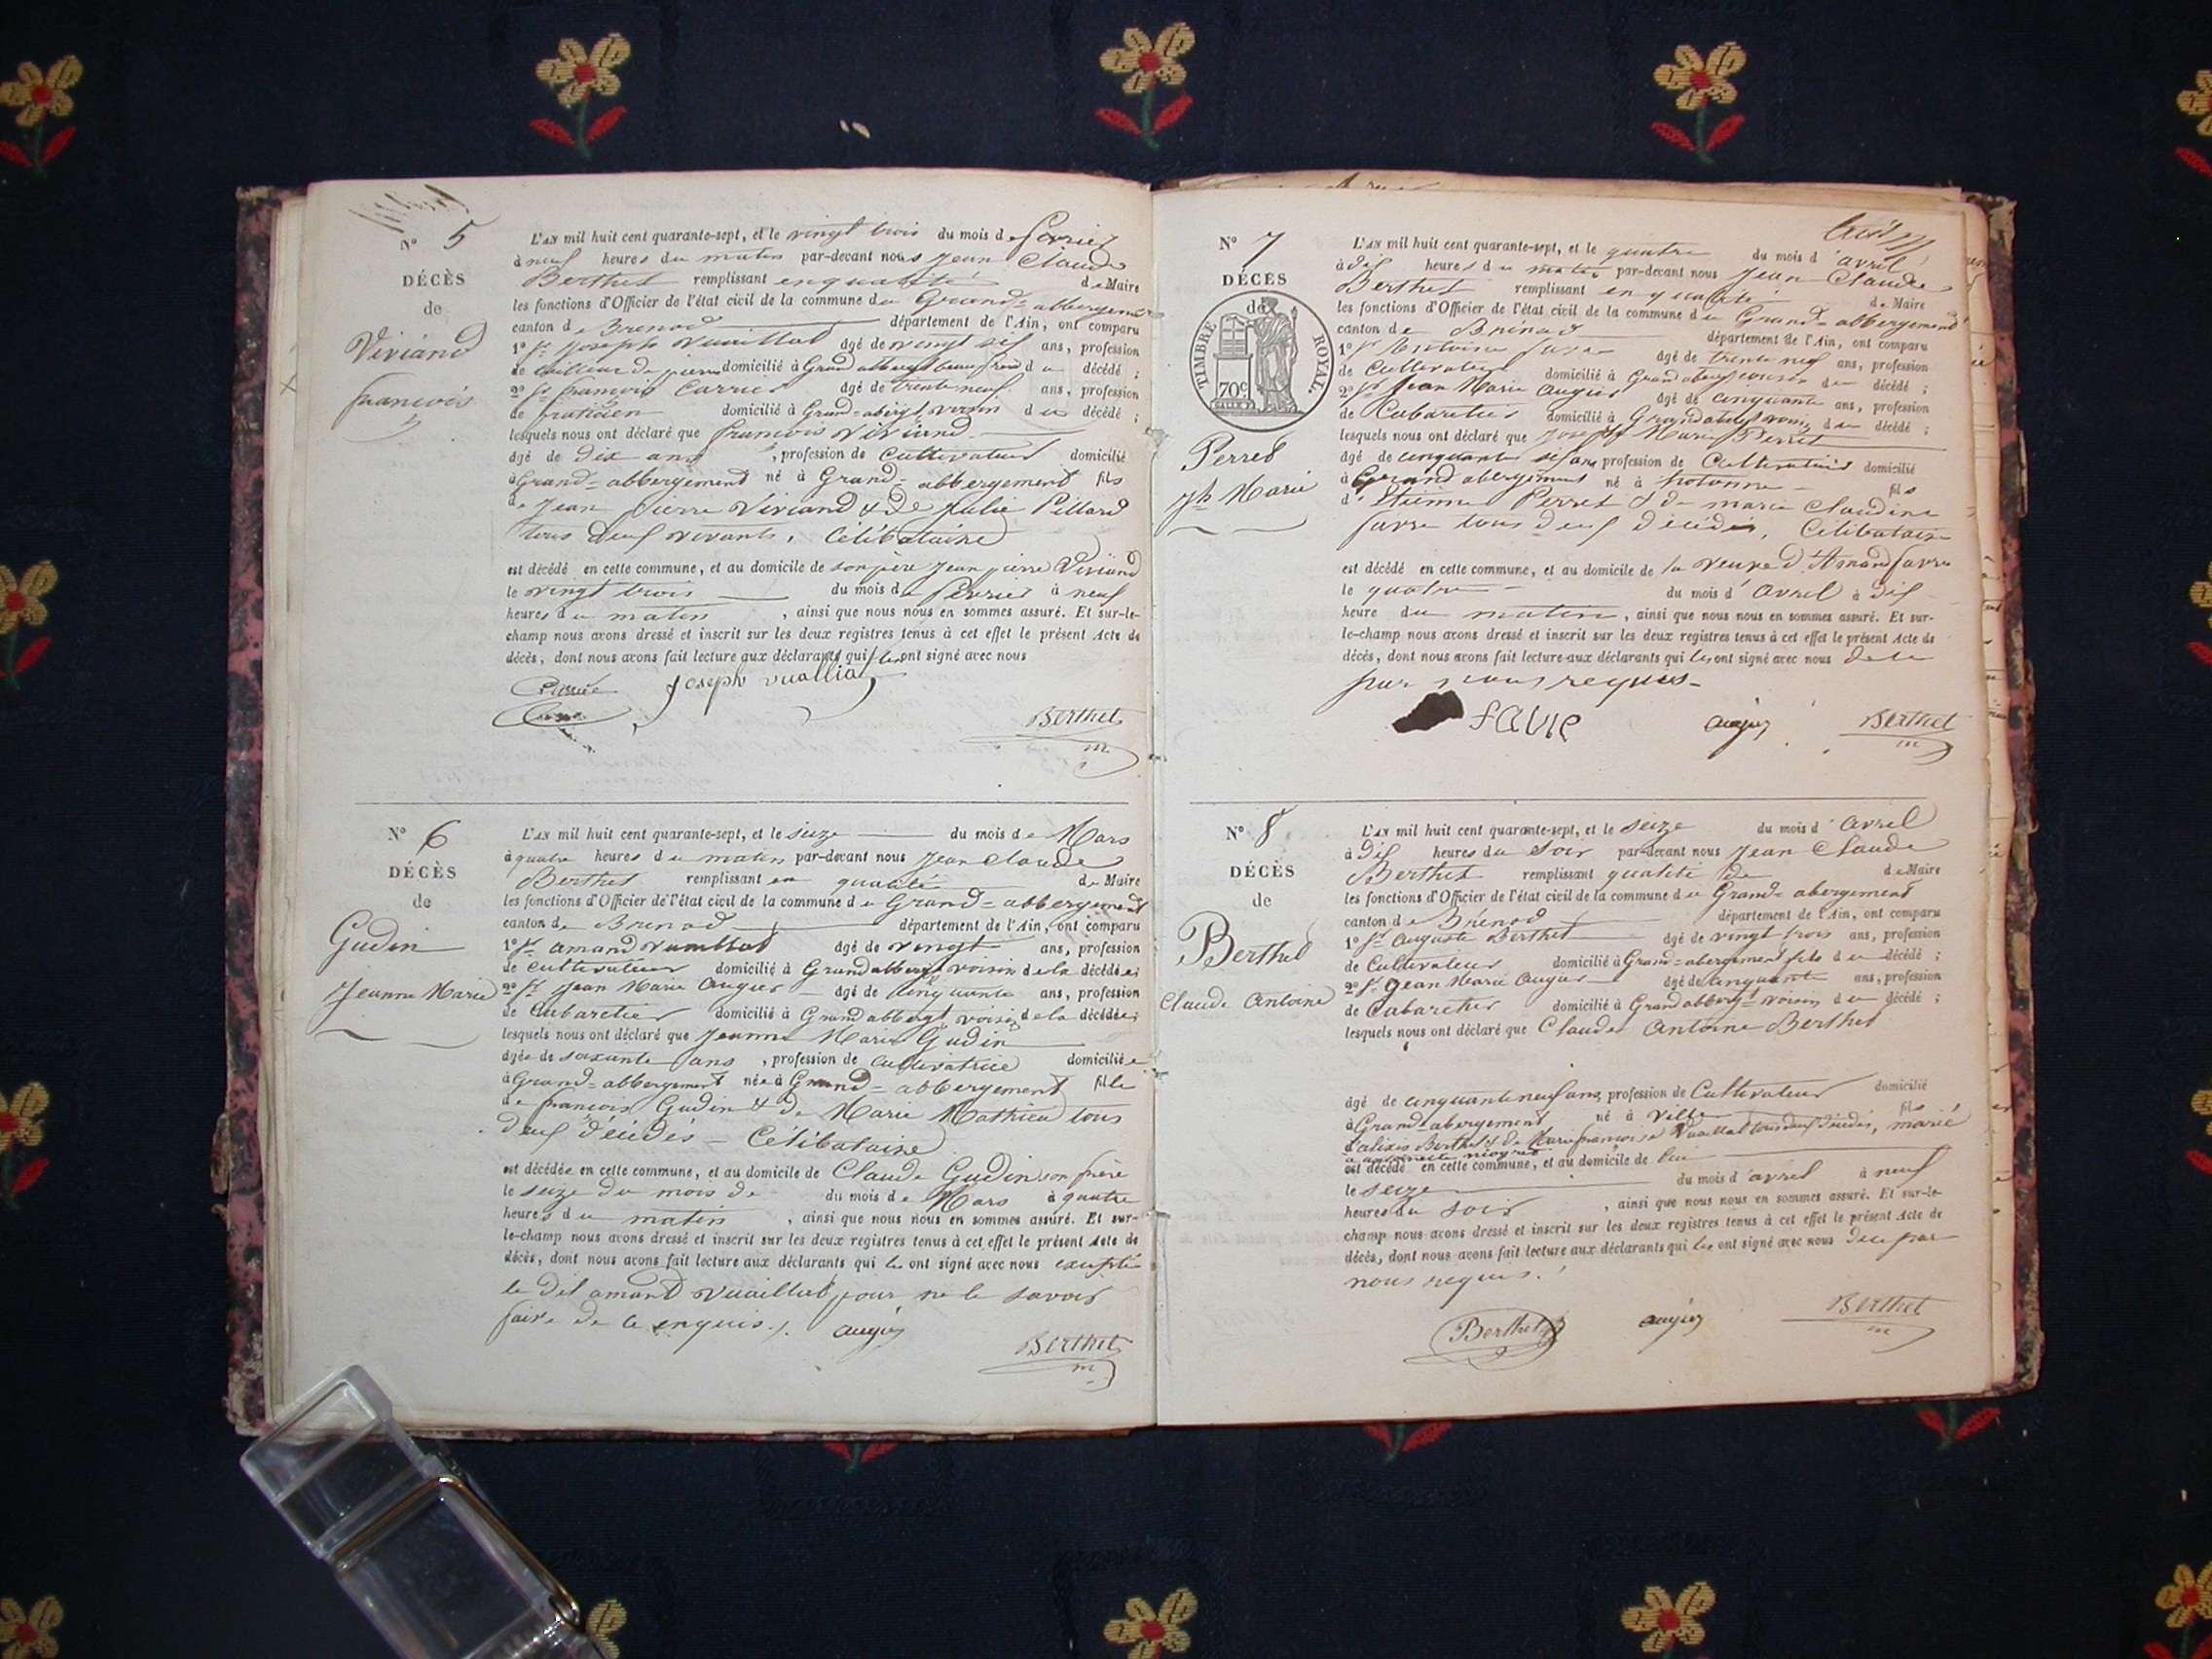 N° 5
DÉCÈS
de
Viviand
francois
L'AN mil huit cent quarante-sept, et le vingt trois du mois de fevrier
à neuf heures du matin par-devant nous Jean Claude
Berthet remplissant en qualité de Maire
les fonctions d'Officier de l'état civil de la commune de Grand=abbergement
canton de Brenod département de l'Ain, ont comparu
1° Sr Joseph Vuaillat âgé de vingt six ans, profession
de tailleur de pierre domicilié à Grand abbergt beau frère du décédé ;
2° Sr francois Carrier âgé de trente neuf ans, profession
de praticien domicilié à Grand=abergt, voisin du décédé ;
lesquels nous ont déclaré que francois Viviand
âgé de Dix ans , profession de Cultivateur domicilié
à Grand=abbergement né à Grand=abbergement fils
de Jean pierre Viviand & de Julie Pillard
tous deux vivants, Célibataire
est décédé en cette commune, et au domicile de son père Jean pierre Viviand
le vingt trois du mois de fevrier à neuf
heures du matin , ainsi que nous nous en sommes assuré. Et sur-le-
champ nous avons dressé et inscrit sur les deux registres tenus à cet effet le présent Acte de
décès, dont nous avons fait lecture aux déclarants qui les ont signé avec nous
Joseph vuallia
Berthet
m
N° 6
DÉCÈS
de
Gudin
Jeanne Marie
L'AN mil huit cent quarante-sept, et le seize du mois de Mars
à quatre heures du matin par-devant nous Jean Claude
Berthet remplissant en qualité de Maire
les fonctions d'Officier de l'état civil de la commune de Grand=abbergement
canton de Brenod département de l'Ain, ont comparu
1° Sr amand Vuaillat âgé de vingt ans, profession
de cultivateur domicilié à Grand abbergt voisin de la décédée;
2° Sr Jean Marie Augier âgé de cinquante ans, profession
de Cabaretier domicilié à Grand abbergt voisin de la décédée;
lesquels nous ont déclaré que Jeanne Marie Gudin
âgée de soixante ans , profession de cultivatrice domiciliée
à Grand=abbergement née à Grand=abbergement fille
de francois Gudin & de Marie Mathieu tous
deux décédés - Célibataire
est décédée en cette commune, et au domicile de Claude Gudin son frère
le seize du mois de du mois de Mars à quatre
heures du matin , ainsi que nous nous en sommes assuré. Et sur-
le-champ nous avons dressé et inscrit sur les deux registres tenus à cet effet le présent Acte de
décès, dont nous avons fait lecture aux déclarants qui les ont signé avec nous excepté
le dit amand Vuaillat pour ne le savoir
faire de ce enquis. augier
Berthet
m
N° 7
DÉCÈS
de
TIMBRE ROYAL.
70c
Perret
Jh Marie
L'AN mil huit cent quarante-sept, et le quatre du mois d'avril
à dix heures du matin par-devant nous Jean Claude
Berthet remplissant en qualité de Maire
les fonctions d'Officier de l'état civil de la commune de Grand=abbergement
canton de Brénod département de l'Ain, ont comparu
1° Sr Antoine favre âgé de trente neuf ans, profession
de Cultivateur domicilié à Grand abergt cousin du décédé ;
2° Sr Jean Marie Augier âgé de cinquante ans, profession
de Cabaretier domicilié à Grand abergt voisin du décédé ;
lesquels nous ont déclaré que Joseph Marie Perret
âgé de cinquante six ans profession de Cultivateur domicilié
à Grand abergement né à hotonne fils
d'Etienne Perret & de marie Claudine
favre tous deux décédés, Célibataire
est décédé en cette commune, et au domicile de la veuve d'Amand favre
le quatre du mois d'avril à dix
heure du matin , ainsi que nous nous en sommes assuré. Et sur-
le-champ nous avons dressé et inscrit sur les deux registres tenus à cet effet le présent Acte de
décès, dont nous avons fait lecture aux déclarants qui les ont signé avec nous de ce
par nous requis-
favre augier Berthet
m
N° 8
DÉCÈS
de
Berthet
Claude Antoine
L'AN mil huit cent quarante-sept, et le seize du mois d'avril
à dix heures du soir par-devant nous Jean Claude
Berthet remplissant qualité de de Maire
les fonctions d'Officier de l'état civil de la commune de Grand=abergement
canton de Brénod département de l'Ain, ont comparu
1° Sr Auguste Berthet âgé de vingt trois ans, profession
de Cultivateur domicilié à Grand=abergement fils du décédé ;
2° Sr Jean Marie Augier âgé de cinquante ans, profession
de Cabaretier domicilié à Grand abbergt voisin du décédé ;
lesquels nous ont déclaré que Claude Antoine Berthet
âgé de cinquante neuf ans, profession de Cultivateur domicilié
à Grand=abergement né à Ville fils
d'alexis Berthet & de Marie francoise Vuaillat tous deux décédés, marié
est décédé en cette commune, et au domicile de lui
le seize du mois d'avril à neuf
heures du soir , ainsi que nous nous en sommes assuré. Et sur-le-
champ nous avons dressé et inscrit sur les deux registres tenus à cet effet le présent Acte de
décès, dont nous avons fait lecture aux déclarants qui les ont signé avec nous de ce par
nous requis.
Berthet augier Berthet
m